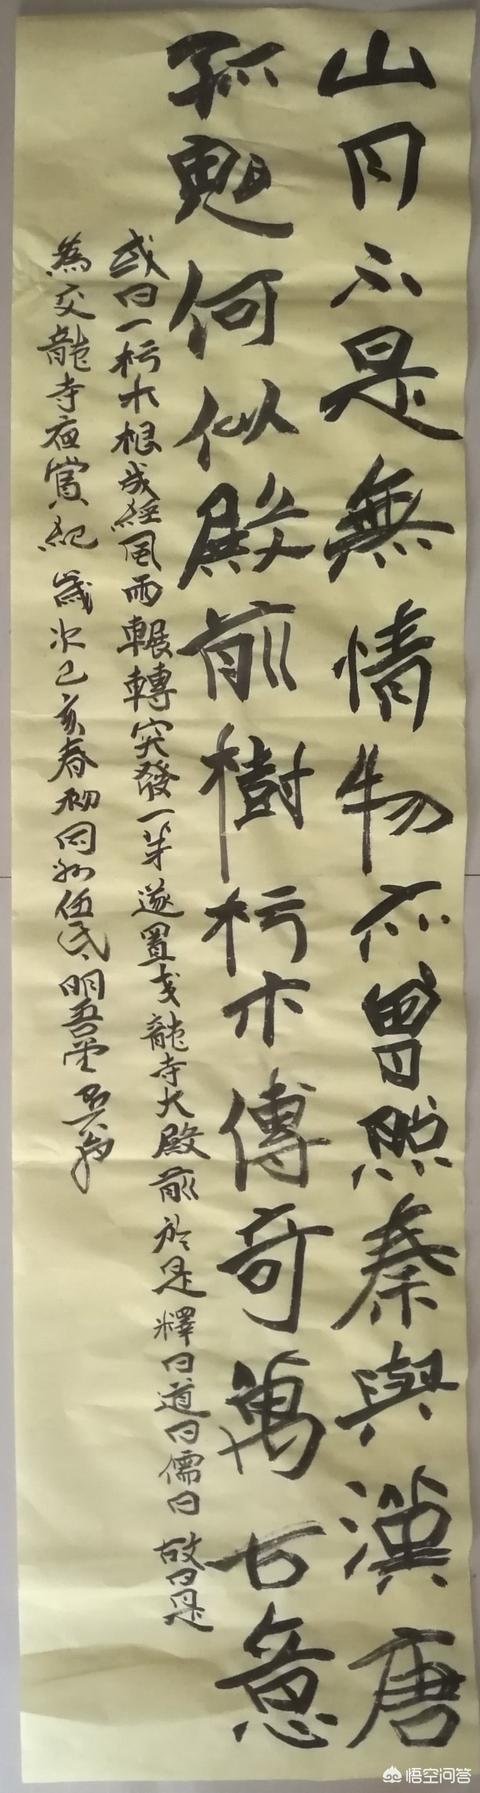 山月不是無情物亦曾照秦與漢唐
孤何似殿前樹朽木傳奇萬古意
或曰一朽木根經風雨輾轉突發一芽遂置交龍寺大殿前於是釋曰道曰儒曰故
為交龍寺夜賞紀 歲次己亥春初同州伍氏明吾堂
悟空问答